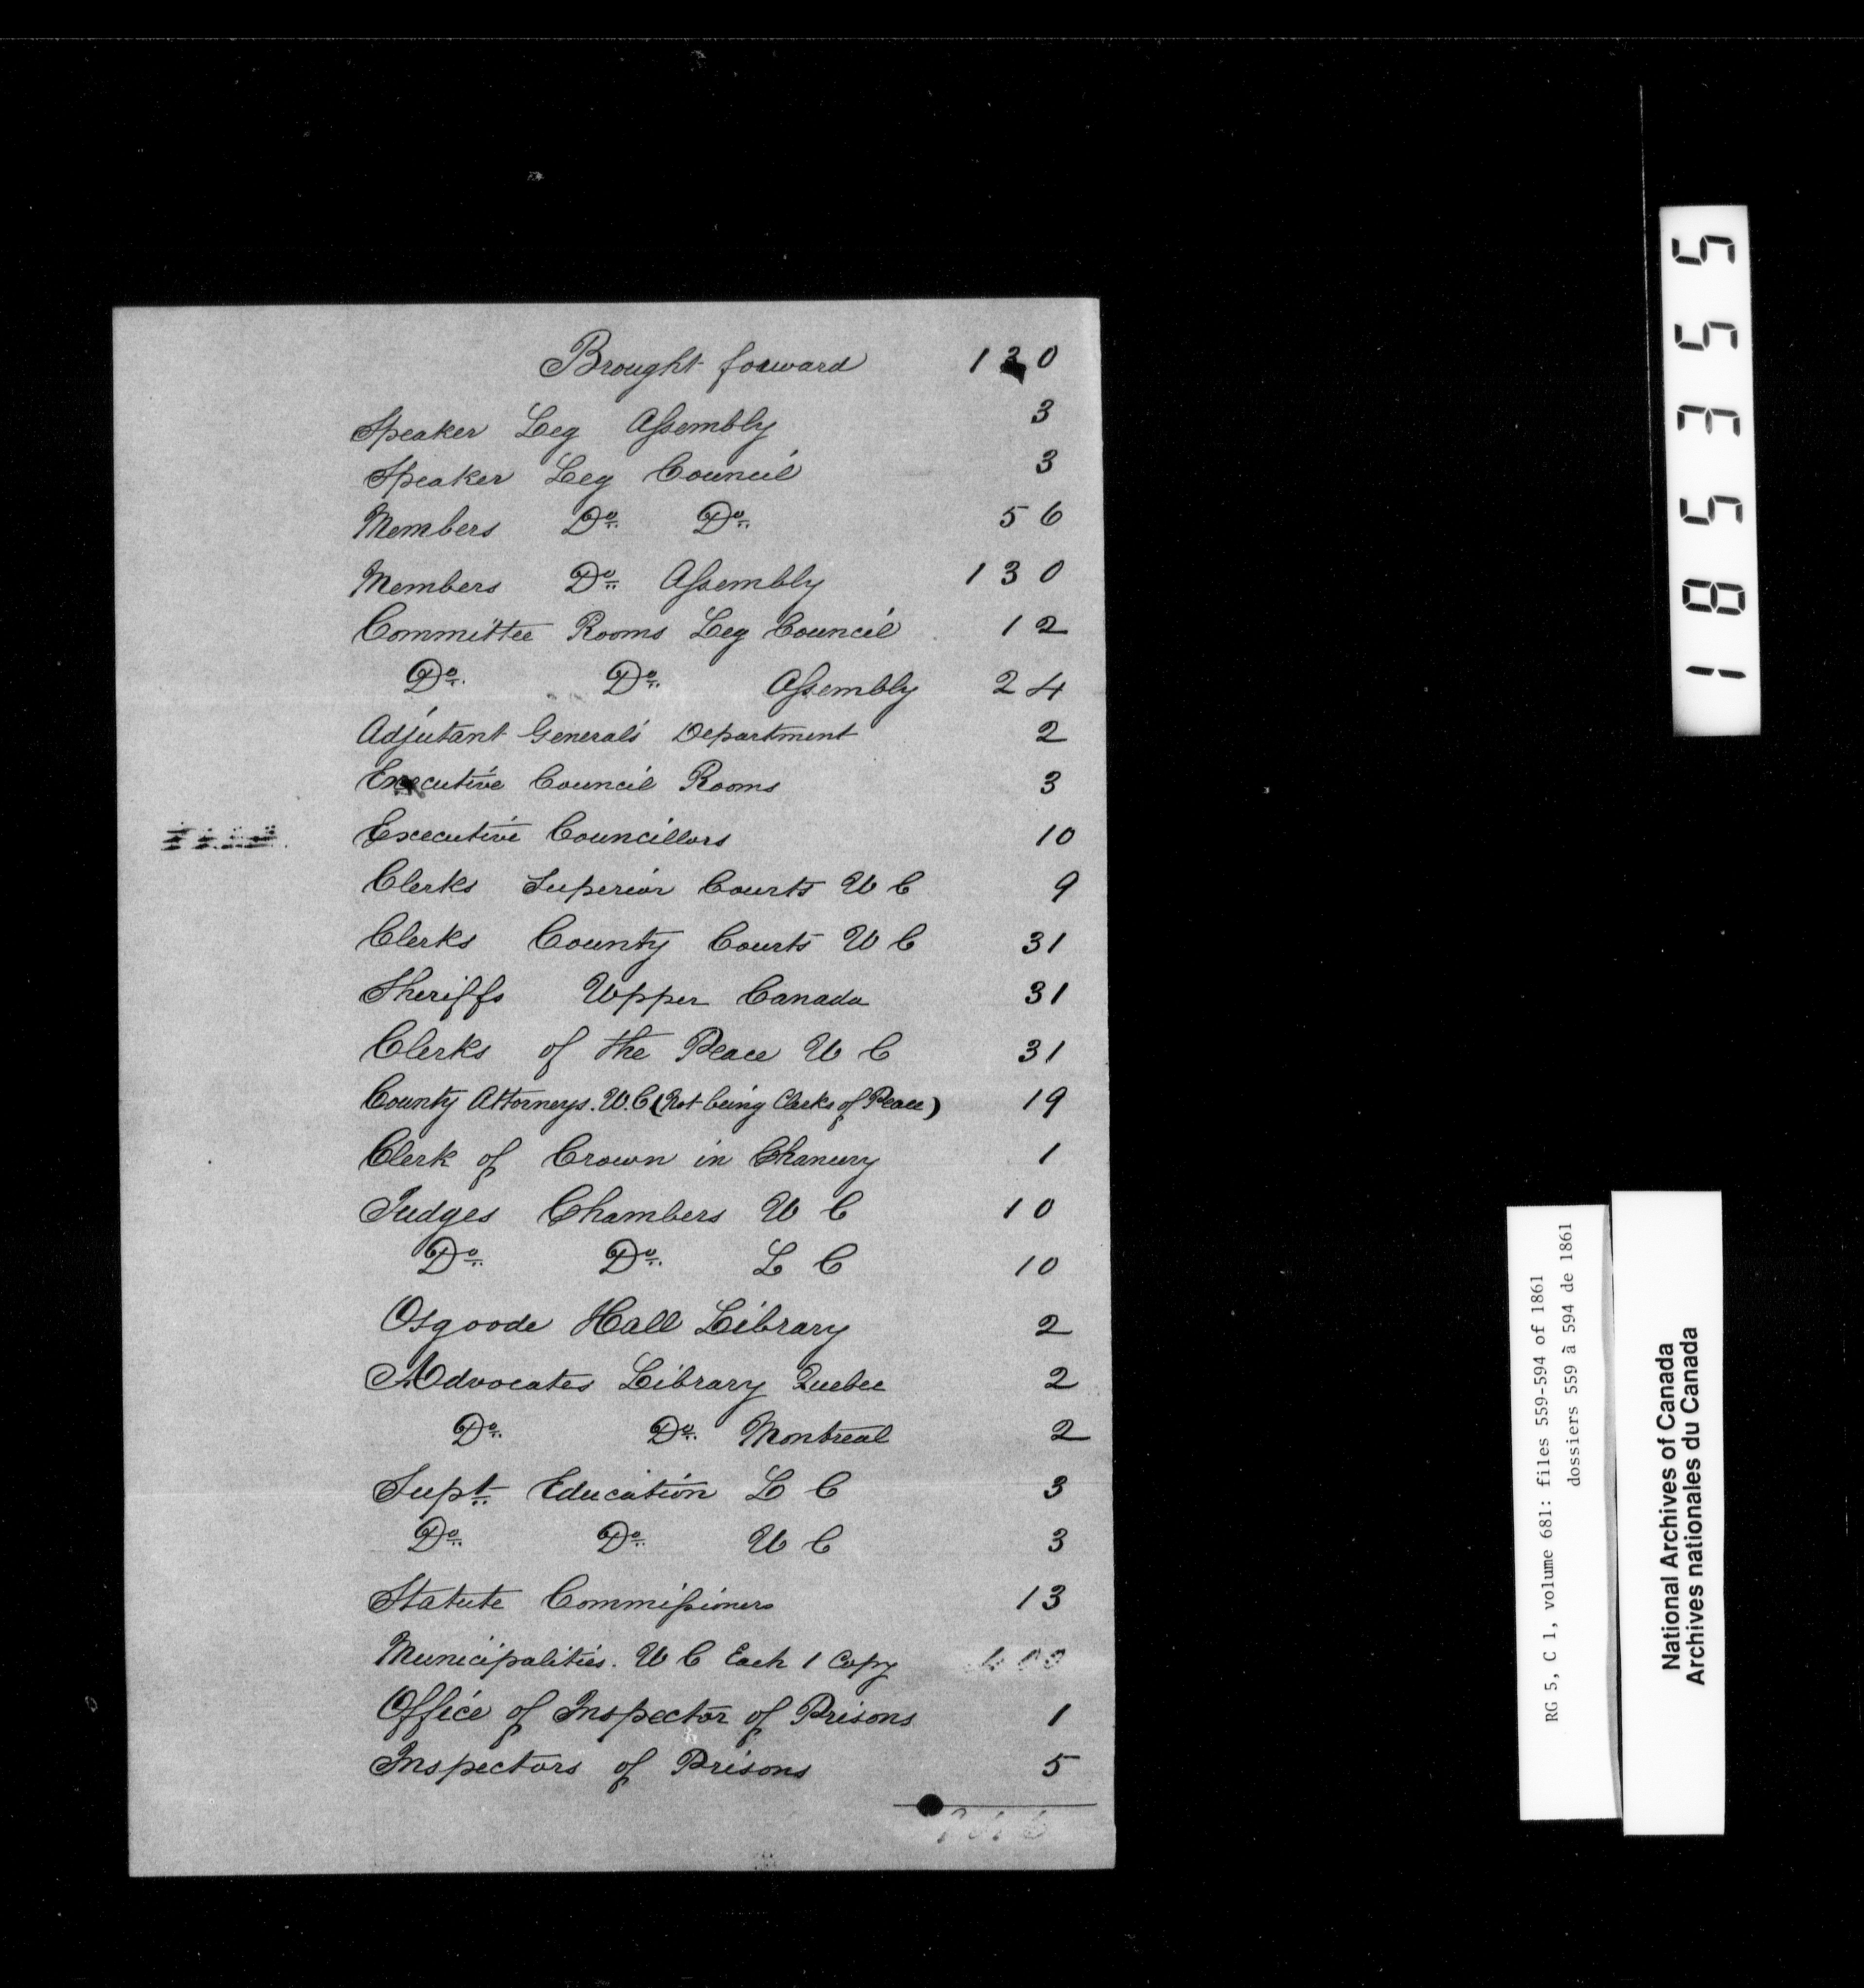 Brought forward 120
Speaker Leg Assembly 3
Speaker Leg Council 3
Members Do Do 56
Members Do Assembly 130
Committee Rooms Leg Council 12
Do Do Assembly 24
Adjutant General's Department 2
Executive Council Rooms 3
Executive Councillors 10
Clerks Superior Courts U C 9
Clerks County Courts U C 31
Sheriffs Upper Canada 31
Clerks of the Peace U C 31
County Attorneys. U.C (Not being Clerks of Peace) 19
Clerk of Crown in Chancery 1
Judges Chambers U C 10
Do Do L C 10
Osgoode Hall Library 2
Advocates Library Quebec 2
Do Do Montreal 2
Supt Education L C 3
Do Do U C 3
Statute Commissioners 13
Municipalities. U C Each 1 Copy 400
Office of Inspector of Prisons 1
Inspectors of Prisons 5
185355
RG 5, C 1, volume 681: files 559-594 of 1861
dossiers 559 à 594 de 1861
National Archives of Canada
Archives nationales du Canada